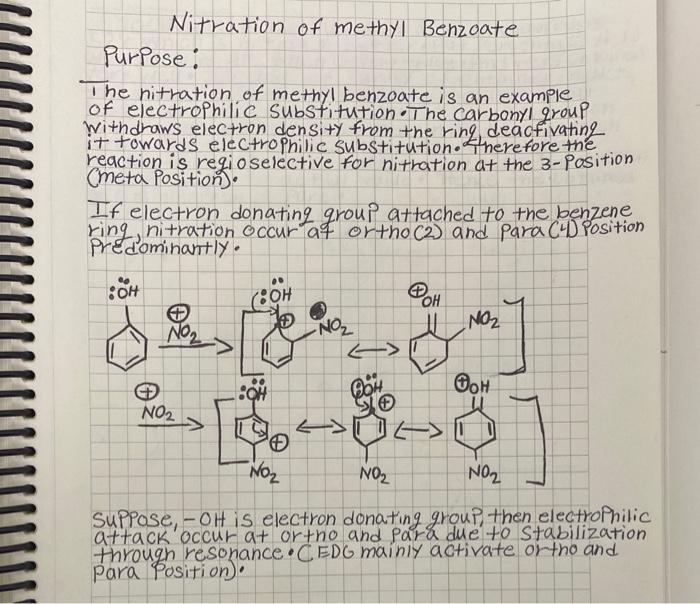 Nitration of methyl Benzoate
Purpose:
The nitration of methyl benzoate is an example
of electrophilic substitution. The carbonyl group
withdraws electron density from the ring, deactivating
it towards electrophilic substitution. Therefore the
reaction is regioselective for nitration at the 3-Position
(meta Position).
If electron donating group attached to the benzene
ring, nitration occur at ortho (2) and Para (4) Position
Predominantly.
:ÖH
⊕
NO2
(:ÖH
⊕
NO2
⊕
OH
NO2
⊕
NO2
:ÖH
⊕
NO2
ÖH
⊕
NO2
⊕OH
NO2
Suppose, -OH is electron donating group, then electrophilic
attack occur at ortho and Para due to stabilization
through resonance. (EDG mainly activate ortho and
Para Position).